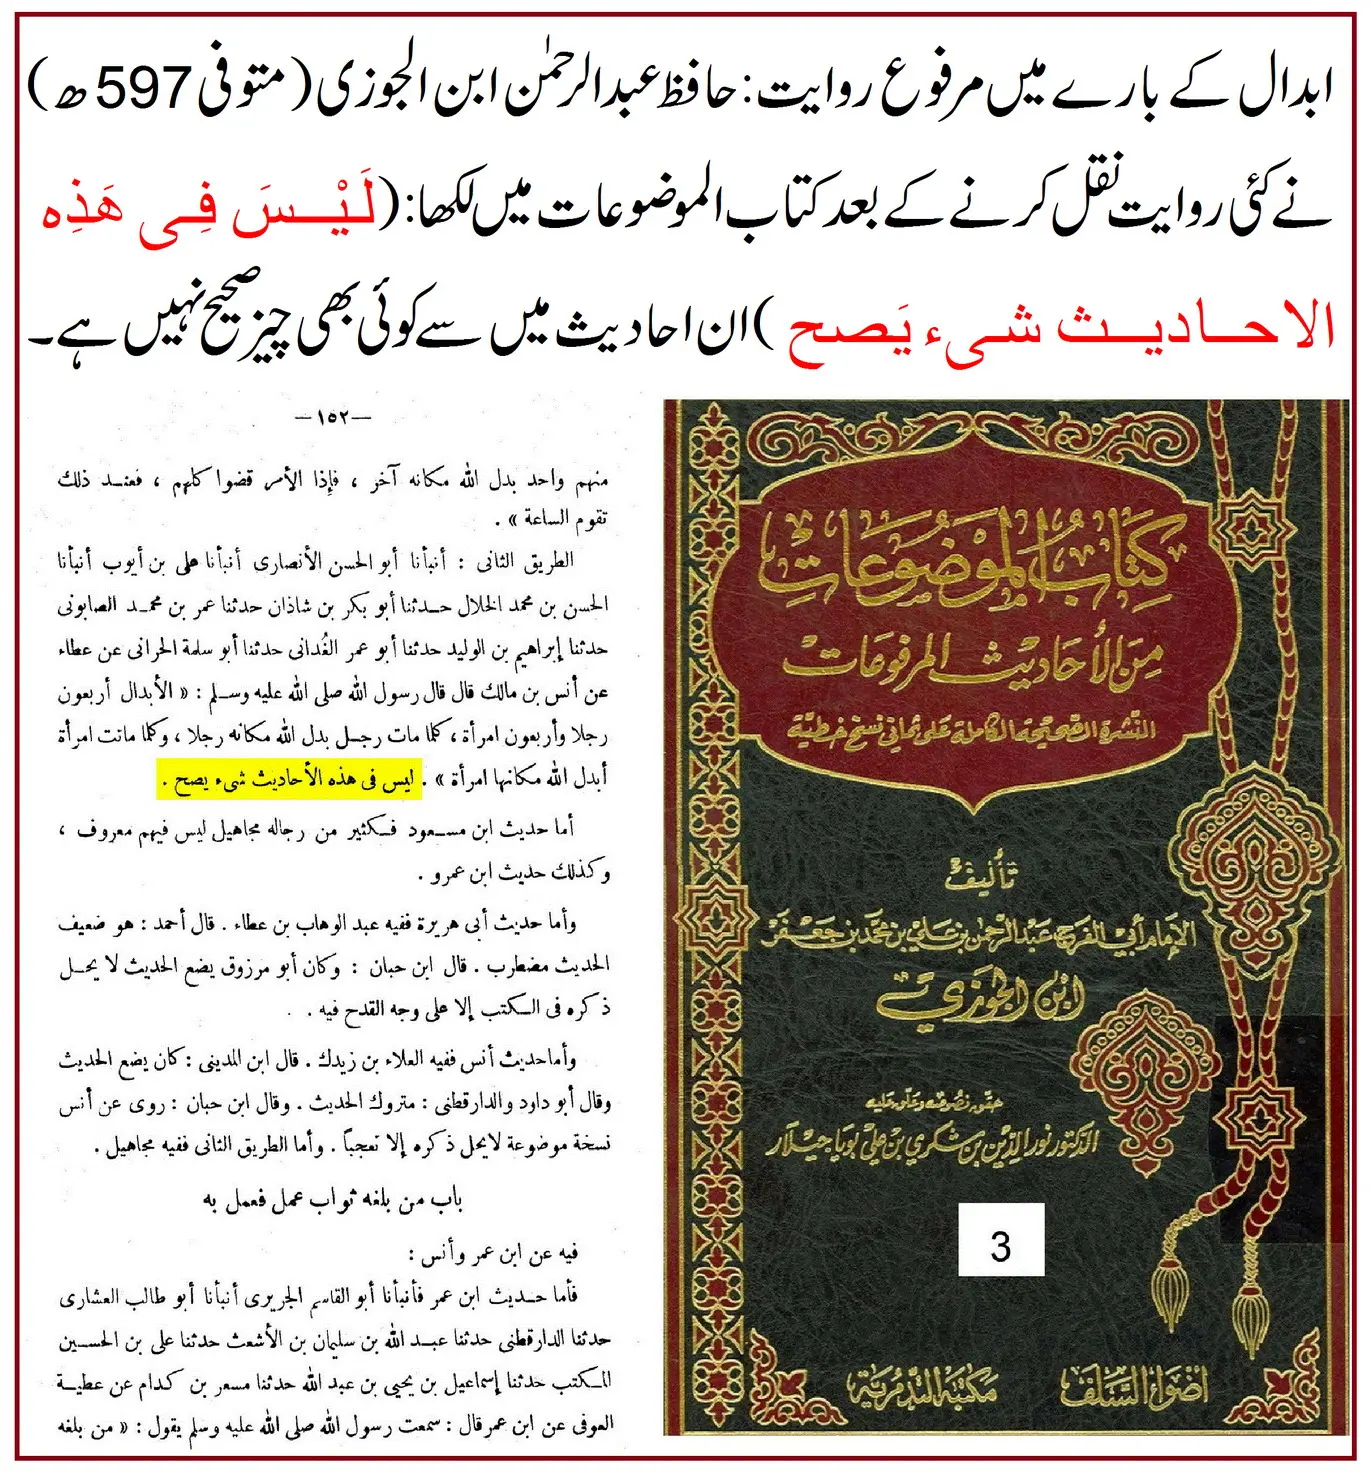 ابدال کے بارے میں مرفوع روایت: حافظ عبدالرحمٰن ابن الجوزی (متوفی 597ھ)
نے کئی روایت نقل کرنے کے بعد کتاب الموضوعات میں لکھا: (لَیْسَ فِی هَذِه
الاحادیث شیء یَصح) ان احادیث میں سے کوئی بھی چیز صحیح نہیں ہے۔
—١٥٢—
منهم واحد بدل الله مكانه آخر ، فإذا الأمر قضوا كلهم ، فعند ذلك
تقوم الساعة » .
الطريق الثانى : أنبأنا أبو الحسن الأنصارى أنبأنا على بن أيوب أنبأنا
الحسن بن محمد الخلال حدثنا أبو بكر بن شاذان حدثنا عمر بن محمد الصابونى
حدثنا إبراهيم بن الوليد حدثنا أبو عمر الغُدانى حدثنا أبو سلمة الحرانى عن عطاء
عن أنس بن مالك قال قال رسول الله صلى الله عليه وسلم : « الأبدال أربعون
رجلا وأربعون امرأة ، كلما مات رجل بدل الله مكانه رجلا ، وكلما ماتت امرأة
أبدل الله مكانها امرأة » . ليس فى هذه الأحاديث شىء يصح .
أما حديث ابن مسعود فكثير من رجاله مجاهيل ليس فيهم معروف ،
وكذلك حديث ابن عمرو .
وأما حديث أبى هريرة ففيه عبد الوهاب بن عطاء . قال أحمد : هو ضعيف
الحديث مضطرب . قال ابن حبان : وكان أبو مرزوق يضع الحديث لا يحل
ذكره فى الكتب إلا على وجه القدح فيه .
وأما حديث أنس ففيه العلاء بن زيدك . قال ابن المدينى : كان يضع الحديث
وقال أبو داود والدارقطنى : متروك الحديث . وقال ابن حبان : روى عن أنس
نسخة موضوعة لايحل ذكره إلا تعجباً . وأما الطريق الثانى ففيه مجاهيل .
باب من بلغه ثواب عمل فعمل به
فيه عن ابن عمر وأنس :
فأما حديث ابن عمر فأنبأنا أبو القاسم الجريرى أنبأنا أبو طالب العشارى
حدثنا الدارقطنى حدثنا عبد الله بن سليمان بن الأشعث حدثنا على بن الحسين
المكتب حدثنا إسماعيل بن يحيى بن عبد الله حدثنا مسعر بن كدام عن عطية
العوفى عن ابن عمر قال : سمعت رسول الله صلى الله عليه وسلم يقول : « من بلغه
كِتَابُ المَوْضُوعَاتِ
مِنَ الأُحَادِيثِ المَرفُوعَات
النشرة الصحيحة الكاملة على ثماني نسخ خطية
تأليف
الإمام أبي الفرج عبد الرحمن بن علي بن محمد بن جعفر
ابن الجوزي
حقق نصوصه وعلق عليه
الدكتور نور الدين بن شكري بن علي بوياجيلار
3
أضواء السلف
مكتبة التدمرية